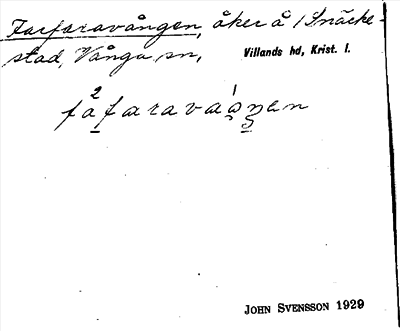 Farfaravången, åker å /Snäcke-
stad, Vånga sn, Villands hd, Krist. l.
fafaravaånen
JOHN SVENSSON 1929